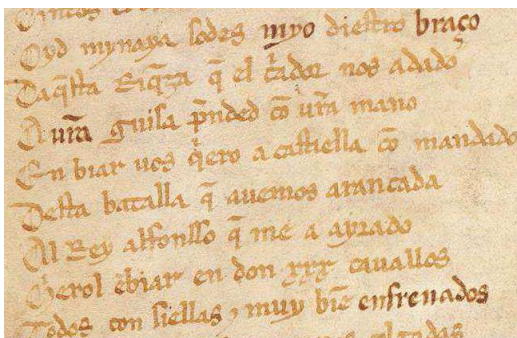 Oyd mynaya sodes myo diestro braço
Daq̃sta Riq̃za q̃ el c̃ador nos adado
A vr̃a guisa p̃nded cõ vr̃a mano
En biar uos q̃ero a castiella cõ mandado
Desta batalla q̃ auemos arancada
Al Rey alfonsso q̃ me a ayrado
Q̃erol ẽbiar en don xxx cauallos
Todos con siellas ⁊ muy biẽ enfrenados